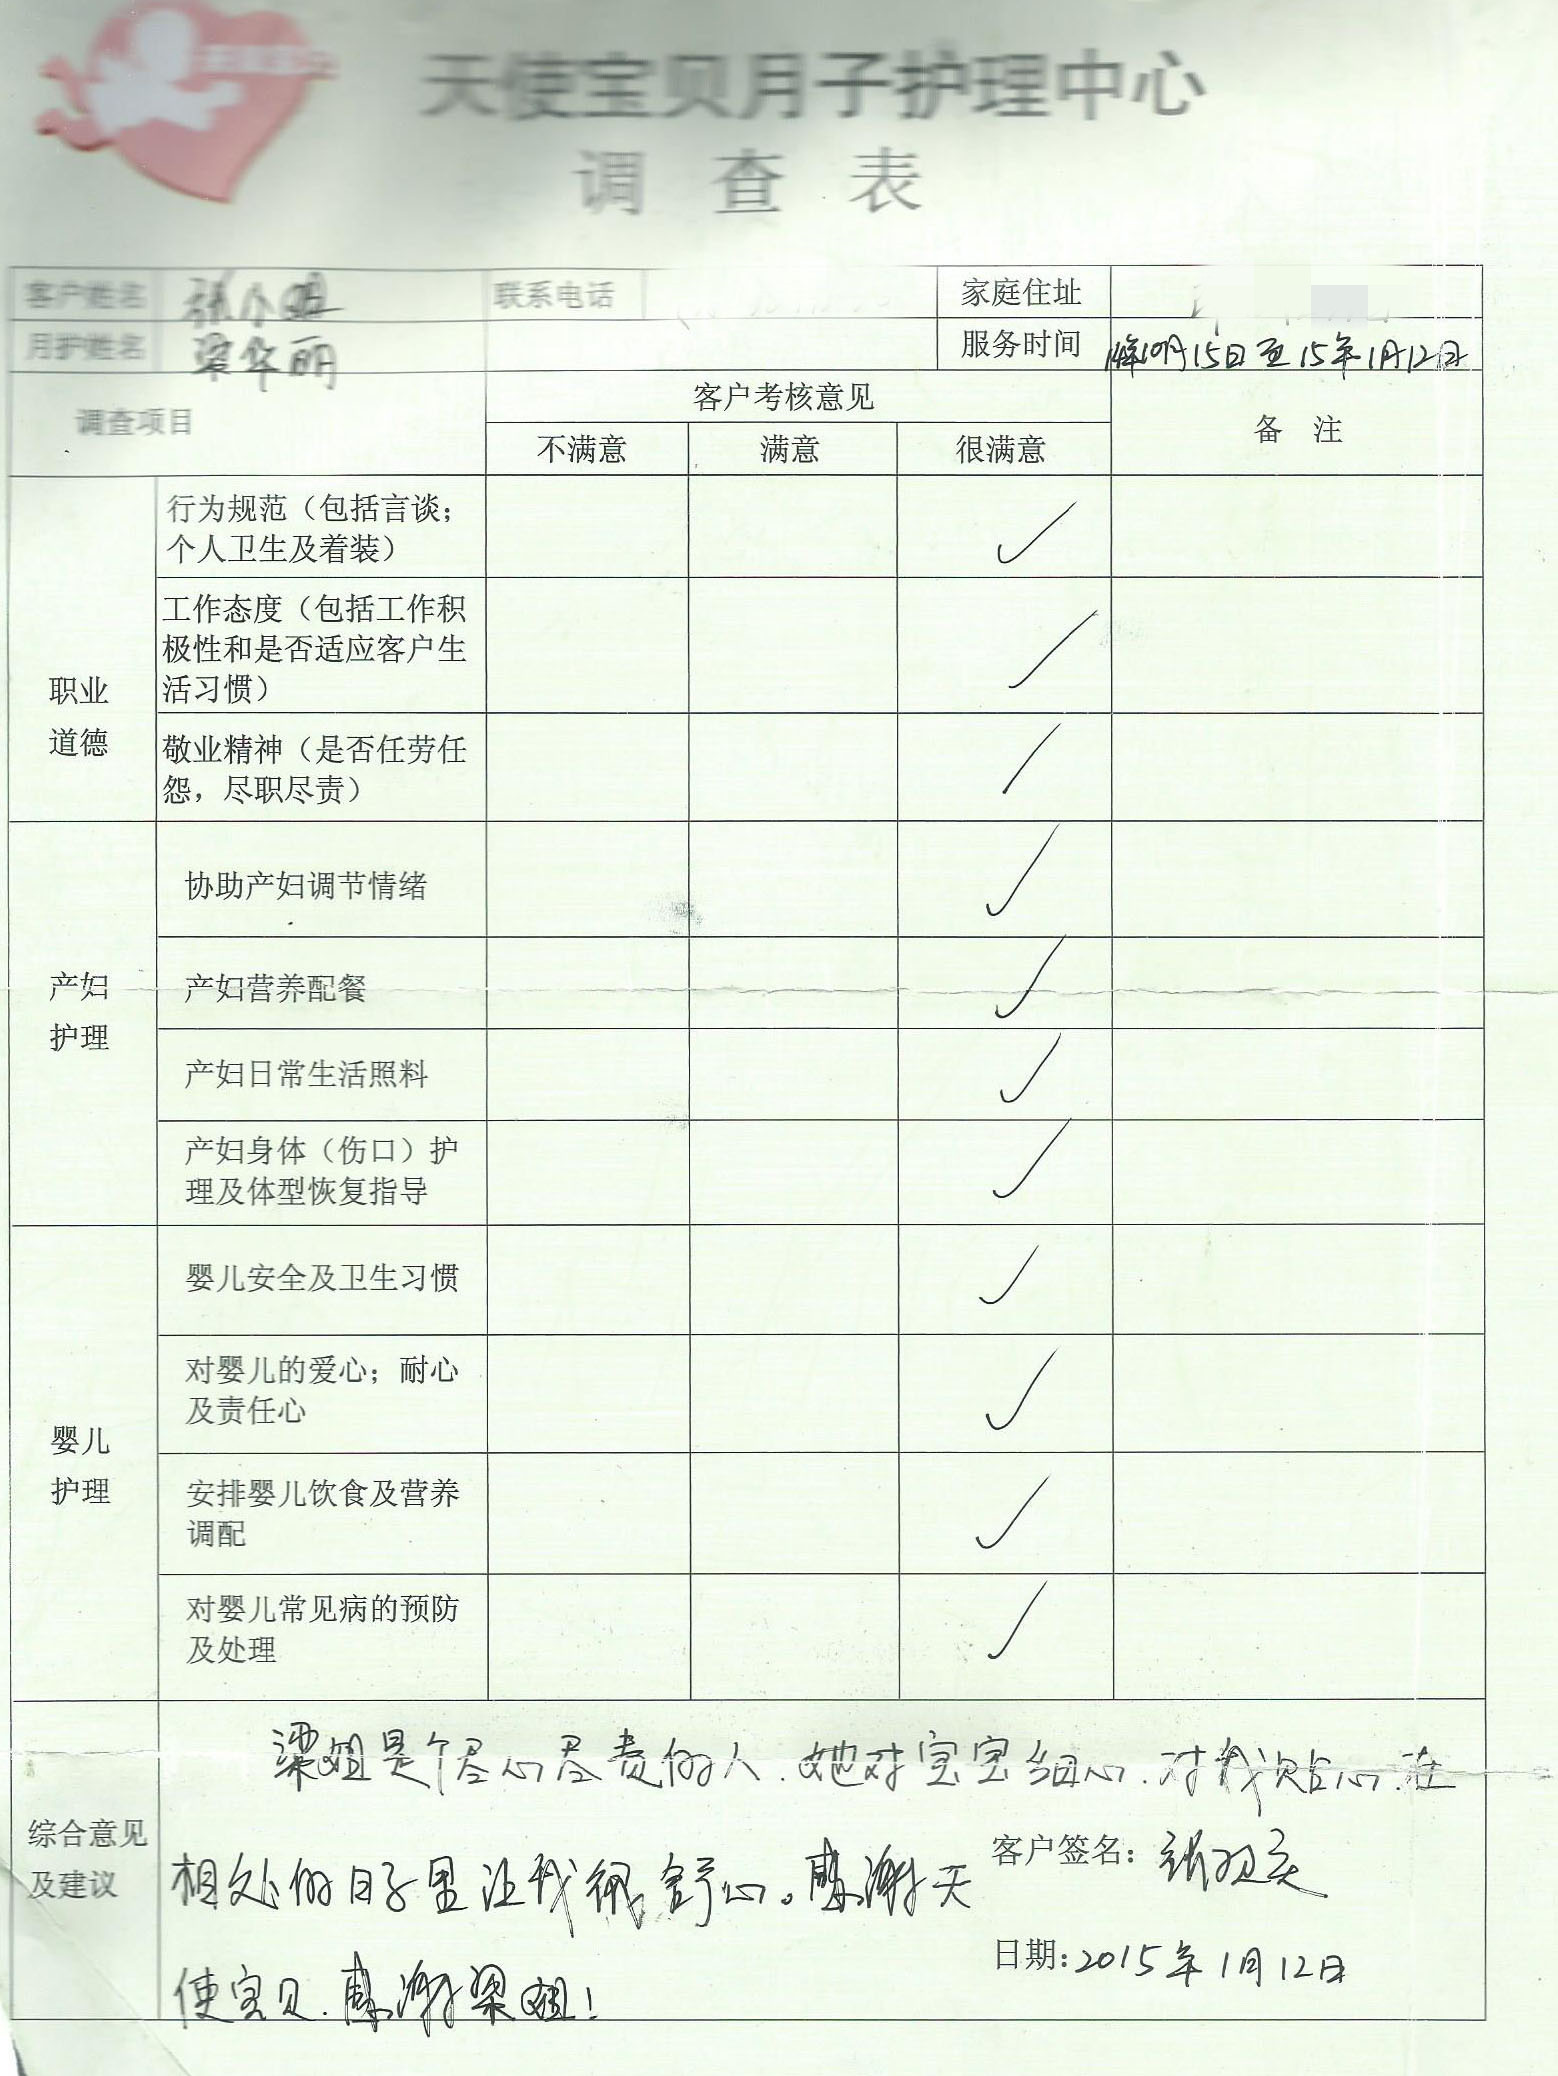 天使宝贝月子护理中心
调查表
客户姓名 张小姐 联系电话 家庭住址
月护姓名 梁华丽 服务时间 14年10月15日至15年1月12日
调查项目 客户考核意见 备注
不满意 满意 很满意
职业
道德
行为规范（包括言谈；
个人卫生及着装）
工作态度（包括工作积
极性和是否适应客户生
活习惯）
敬业精神（是否任劳任
怨，尽职尽责）
产妇
护理
协助产妇调节情绪
产妇营养配餐
产妇日常生活照料
产妇身体（伤口）护
理及体型恢复指导
婴儿
护理
婴儿安全及卫生习惯
对婴儿的爱心；耐心
及责任心
安排婴儿饮食及营养
调配
对婴儿常见病的预防
及处理
综合意见
及建议
梁姐是个尽心尽责的人.她对宝宝细心.对我贴心.在
相处的日子里让我很舒心。感谢天
使宝贝.感谢梁姐！
客户签名：
日期：2015年1月12日